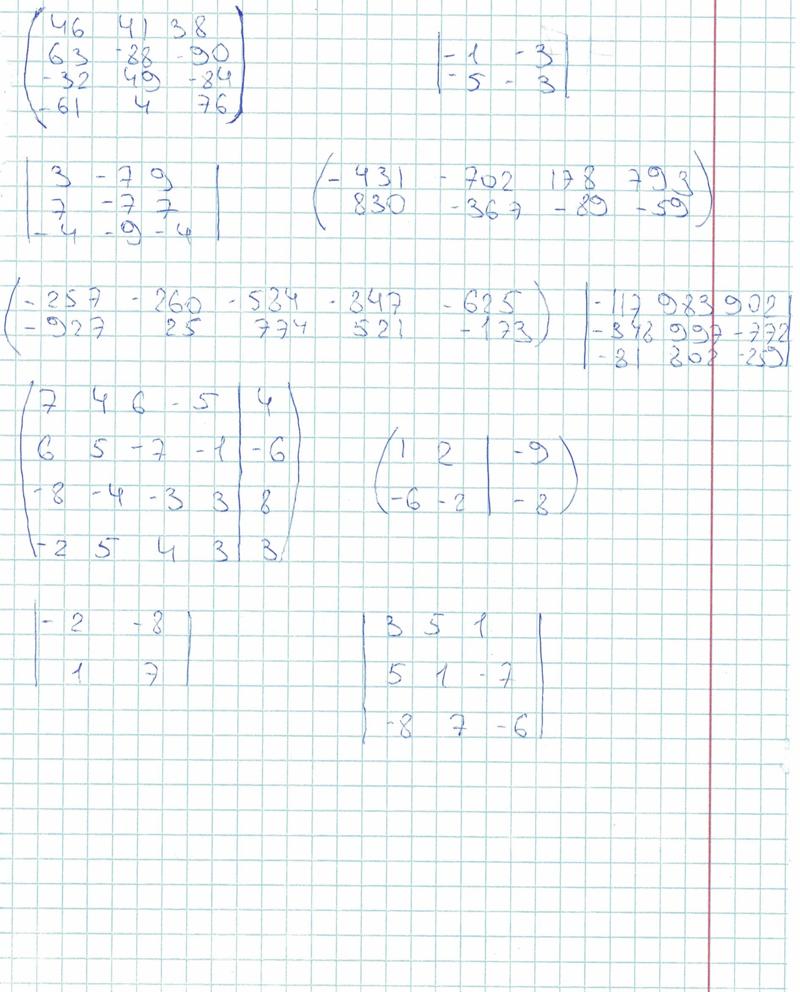 46 41 38
63 -88 -90
-32 49 -84
-61 4 76
-1 -3
-5 -3
3 -7 9
7 -7 7
-4 -9 -4
-431 -702 178 793
830 -367 -89 -59
-257 -260 -534 -347 -625
-927 25 774 521 -173
-117 983 902
-348 997 -772
-81 808 -259
7 4 6 -5 | 4
6 5 -7 -1 | -6
-8 -4 -3 3 | 8
-2 5 4 3 | 3
1 2 | -9
-6 -2 | -8
-2 -8
1 7
3 5 1
5 1 -7
-8 7 -6